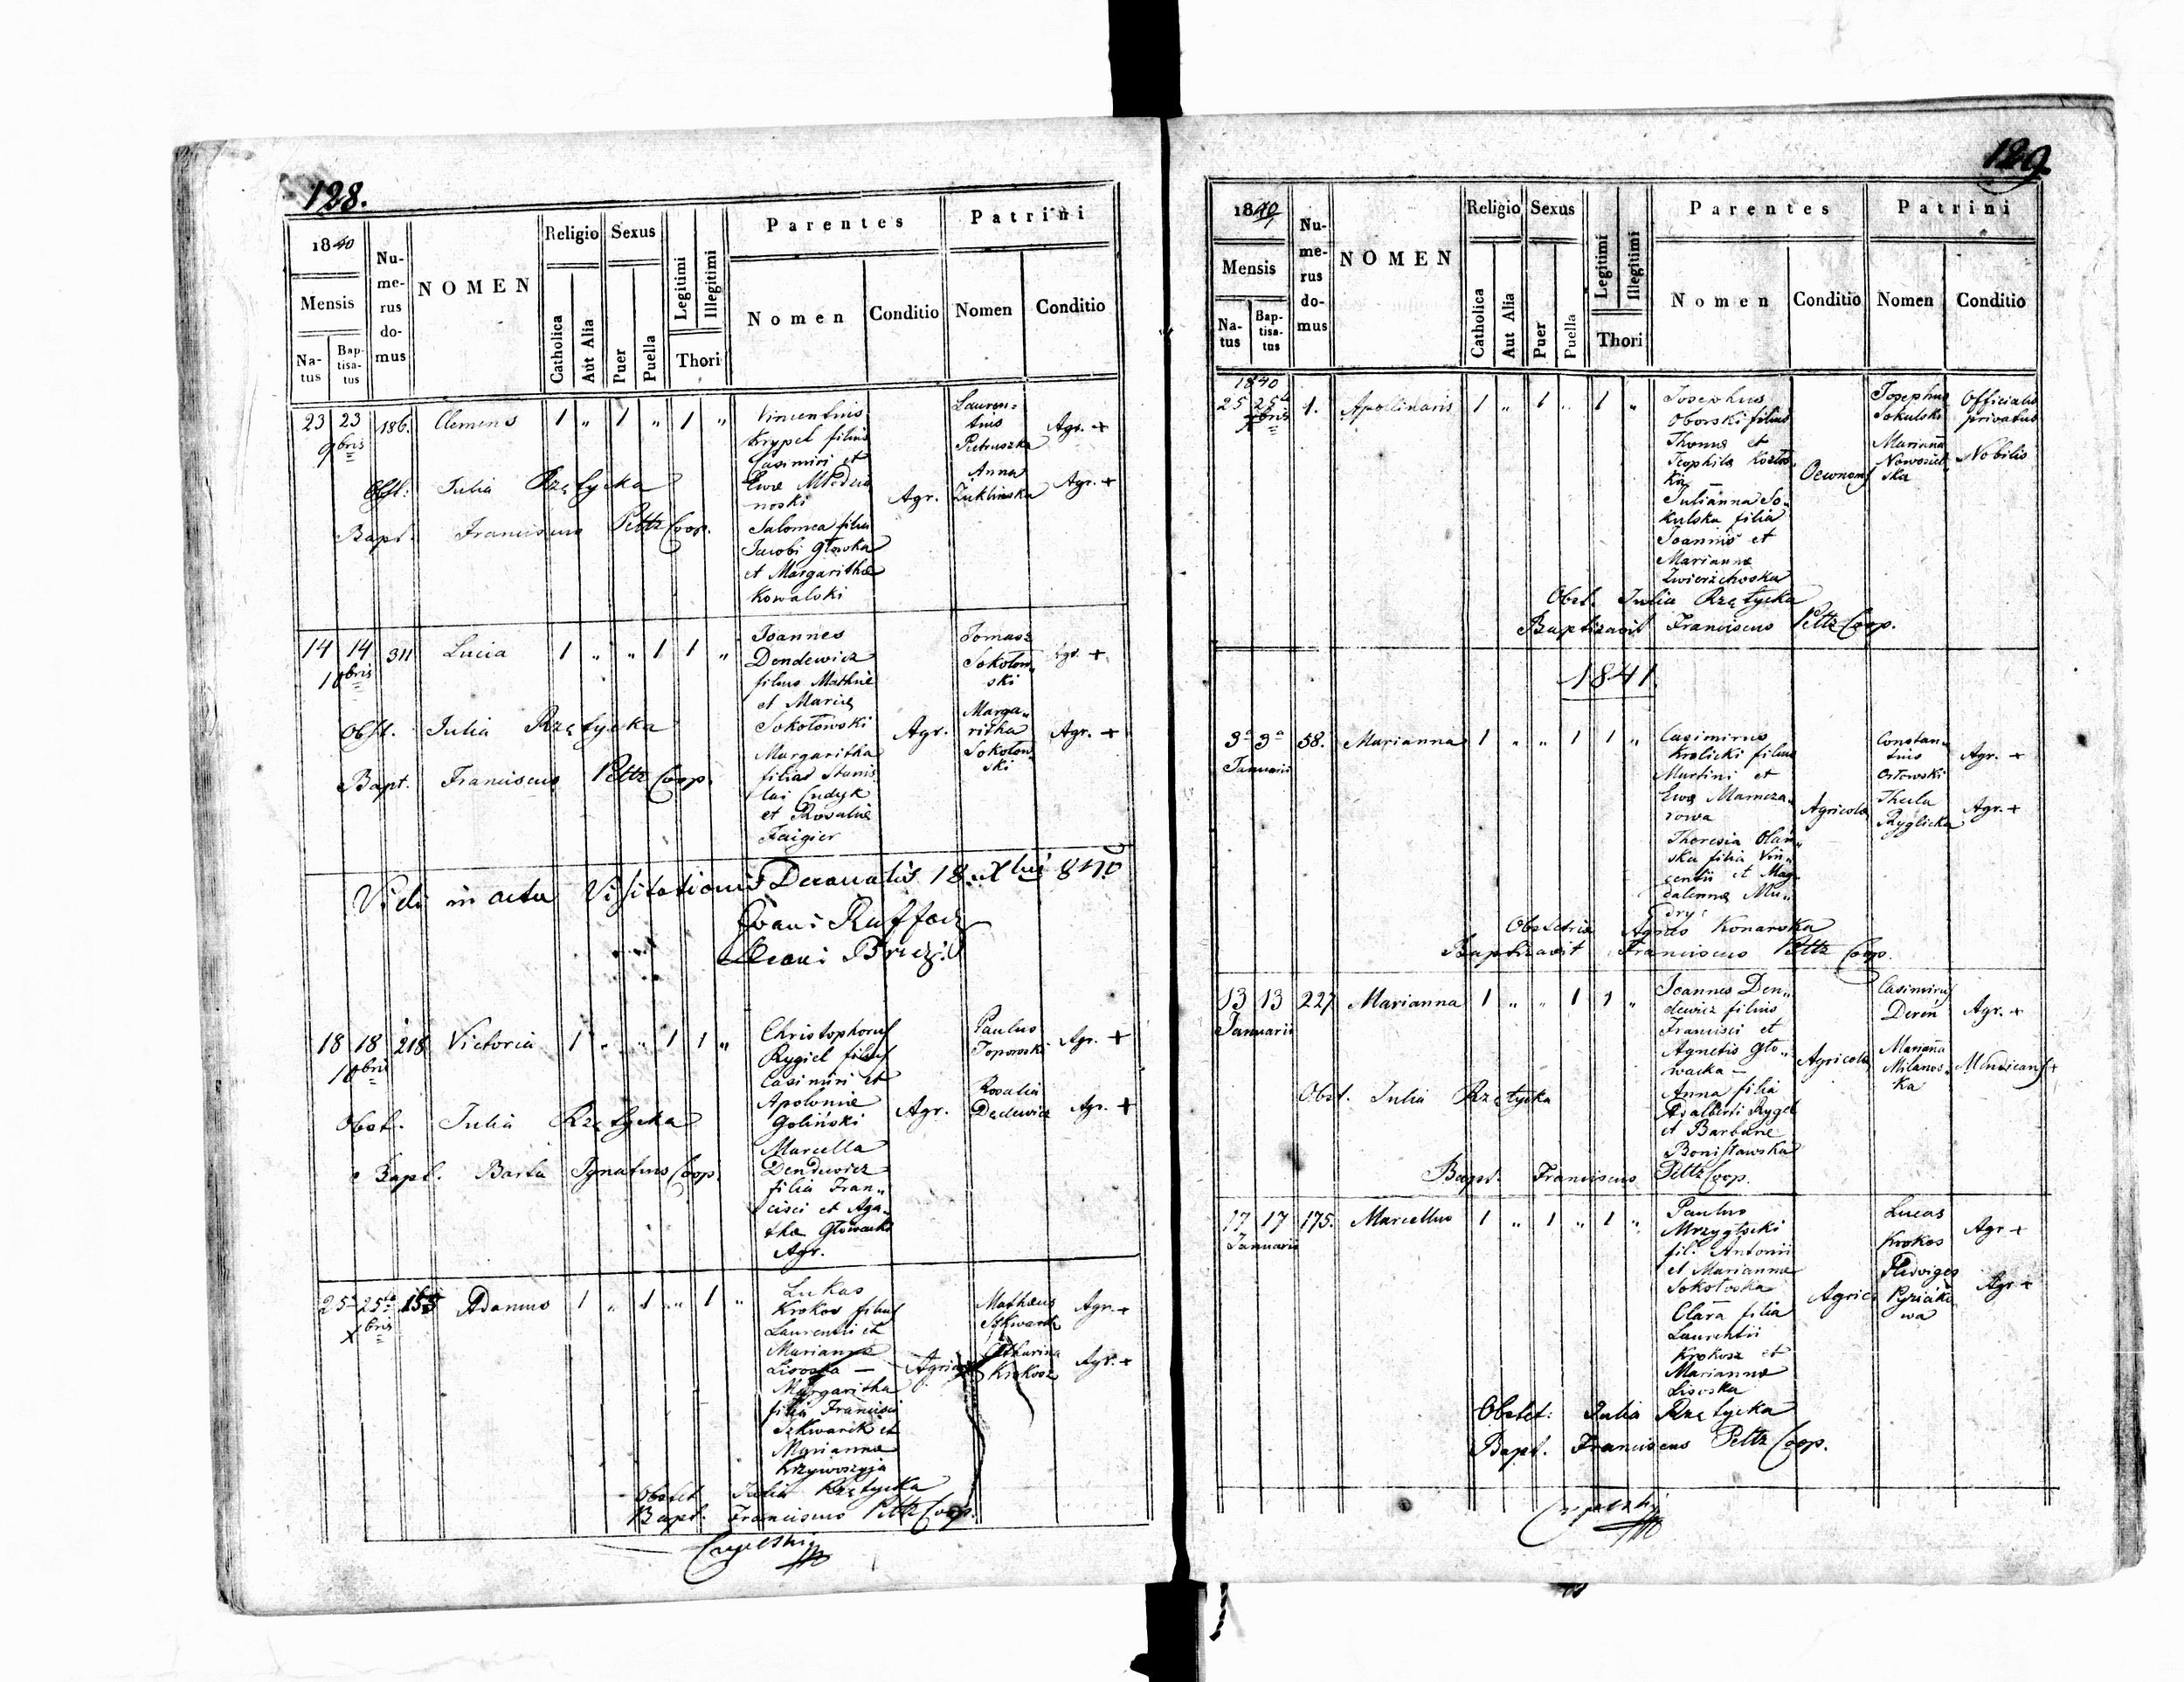 128.
1840
Mensis
Na-
tus
Bap-
tisa-
tus
Nu-
me-
rus
do-
mus
NOMEN
Religio
Catholica
Aut Alia
Sexus
Puer
Puella
Legitimi
Illegitimi
Thori
Parentes
Nomen
Conditio
Patrini
Nomen
Conditio
23 23 186. Clemens 1 „ 1 „ 1 „
9bris
Vincentius
Krypel filius
Casimiri et
Ewæ
noski
Salomea filia
Jacobi Głowka
et Margarithæ
Kowalski
Agr.
Lauren-
tius
Pietruszka
Agr. +
Anna
Żuklińska
Agr. +
Obst: Julia Rzętycka
Bapt. Franciscus Peltz Coop.
14 14 311 Lucia 1 „ „ 1 1 „
10bris
Joannes
Dendewicz
filius Mathiæ
et Mariæ
Sokołowski
Margaritha
filia Stanis
lai
et Rosaliæ
Faigier
Agr.
Tomasz
Sokołow„
ski
Agr. +
Marga„
ritha
Sokołow
ski
Agr. +
Obst. Julia Rzętycka
Bapt. Franciscus Peltz Coop.
Vidi in actu Visitationis Decanalis 18 Xbris 840
18 18 218 Victoria 1 „ „ 1 1 „
10bris
Christophorus
Rygiel filius
Casimiri et
Apoloniæ
Goliński
Marcella
Dendewicz
filia Fran„
cisci et Aga„
thæ Głowacki
Agr.
Agr.
Paulus
Toporoski
Agr. +
Rosalia
Dedewicz
Agr. +
Obst. Julia Rzętycka
Bapt. Barta Ignatius Coop.
25 25 155 Adamus 1 „ 1 „ 1 „
Xbris
Lukas
Krokos filius
Laurentii et
Mariannæ
Lisoska —
Margaritha
filia Francisci
Szkwarik et
Mariannæ
Krzywoszyja
Mathæus
Agr. +
Catharina
Krokosz
Agr. +
Obstet. Julia Rzętycka
Bapt. Franciscus Peltz Coop.
129.
1840/1
Mensis
Na-
tus
Bap-
tisa-
tus
Nu-
me-
rus
do-
mus
NOMEN
Religio
Catholica
Aut Alia
Sexus
Puer
Puella
Legitimi
Illegitimi
Thori
Parentes
Nomen
Conditio
Patrini
Nomen
Conditio
1840
25 25 1. Apollinaris 1 „ 1 „ 1 „
Xbris
Josephus
Oborski filius
Thomæ et
Teophila Kozłos„
ka —
Julianna So„
kulska filia
Joannis et
Mariannæ
Zwierzchoska
Oeconom
Josephus
Sokulski
Officialis
privatus
Marianna
Nowosiel„
ska
Nobilis
Obst. Julia Rzętycka
Baptizavit Franciscus Peltz Coop.
1841.
3a 3a 58. Marianna 1 „ „ 1 1 „
Januarii
Casimirus
Krolicki filius
Martini et
Ewæ Mamcza„
rowa
Theresia Olan„
ska filia Vin„
centii et Mag„
dalennæ Mu„
dry
Agricola
Constan„
tius
Orłowski
Agr. +
Thecla
Ryglicka
Agr. +
Obstetrix Agnes Konarska
Baptizavit Franciscus Peltz Coop.
13 13 227 Marianna 1 „ „ 1 1 „
Januarii
Joannes Den„
dewicz filius
Francisci et
Agnetis Gło„
wacka —
Anna filia
Adalberti Rygel
et Barbaræ
Bonisławska
Agricola
Casimirus
Deren
Agr. +
Marianna
Milanos„
ka
Mendicans +
Obst. Julia Rzętycka
Bapt. Franciscus Peltz Coop.
17 17 175. Marcellus 1 „ 1 „ 1 „
Januarii
Paulus
Mrzygłocki
fil. Antonii
et Mariannæ
Sokołoska
Clara filia
Laurentii
Krokosz et
Mariannæ
Lisoska
Agric.
Lucas
Krokos
Agr +
Hedviges
wa
Agr +
Obstet: Julia Rzętycka
Bapt. Franciscus Peltz Coop.